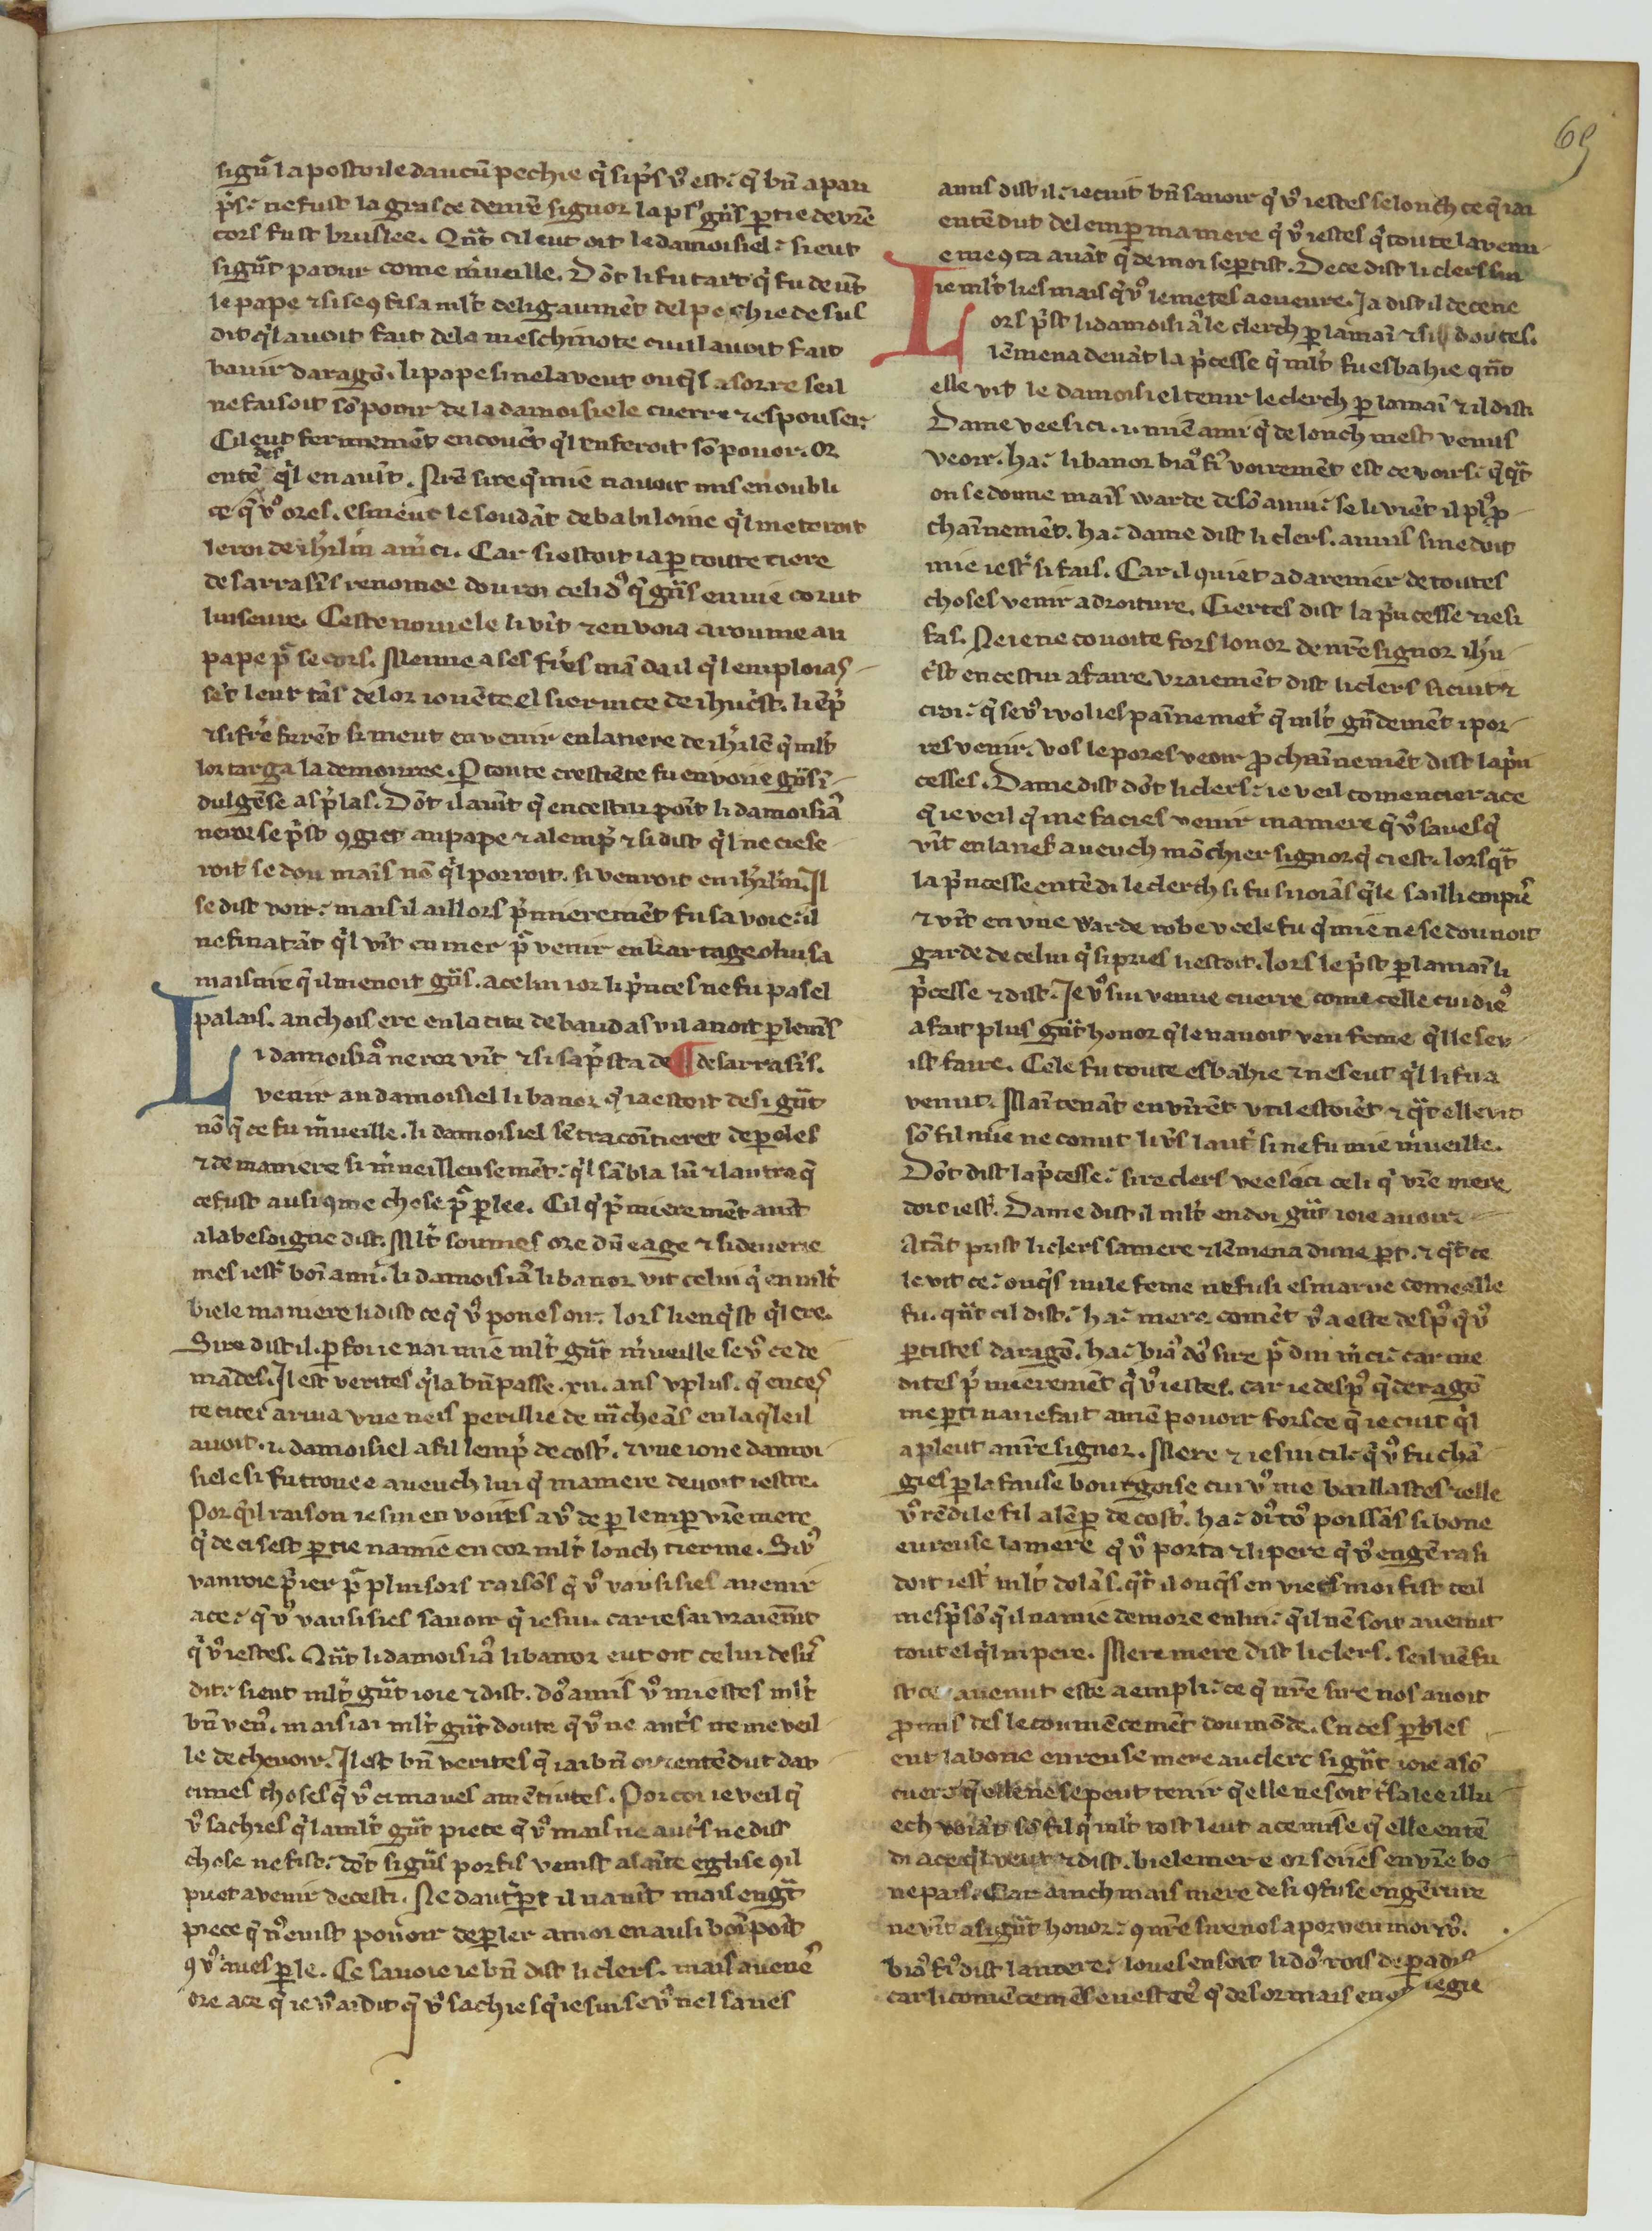 69
signu᷑ lapostoile daucū pechie q̓ si pͥs vꝰ est. q̄ bn̄ apau
pͥs. ne fust la grasce de nr̄e signor la plꝰ gn̄s ꝑtie de vr̄e
cors fust bruslee. Qn̄t cil eut oit le damoisiel. si eut
si gn̄t paour come m̓ueille. Dōt li fu tart q̓l fu deūt
le pape ⁊ si se ꝯfisa ml̓t deligaumēt del pechie de sus
dit q̓l auoit fait de la meschinote cui il auoit fait
bauir daragō. li pape si ne la veut onq̄s asorre se il
ne faisoit sō pooir de la damoisiele cuerre ⁊ espouser.
Cil eut fermemēt encouēt q̓l en feroit sō pooir. Or
entēdes q̓l en auīt. Nr̄e sire q̓ mie nauoit mis en oubli
ce q̄ vꝰ ores. esmeut le soudāt de babiloine q̓l meteroit
le roi de ih̓rl̓m a m̓ci. Car si estoit ia ꝑ toute tiere
de sarrasīs renomee dou roi celidꝰ q̄ gn̄s enuie corut
lui seure. Ceste nouiele li vīt ⁊ enuoia a roume au
pape pᵃ secors. Meime a ses fr̓es māda il q̓l emploias
sēt leur tās de lor iouēte el sieruice de ihūcͥst. li ēpͥ
⁊ si fr̓e furēt si meut en venir en la tiere de ih̓rl̓m q̄ ml̓t
lor targa la demouree. P toute crestiente fu enuoie gn̄s ī
dulgēse as pͥlas. Dōt il auīt q̄ en cestui poīt li damoisiaᵘ
neror se pͥst ꝯgiet au pape ⁊ a lempͥ ⁊ si dist q̓l ne ciese
roit se dou mains nō q̓l porroit. si venroit en ih̓rl̓m. Il
se dist voir. mais il aillors pͥmieremēt fu sa voie. il
ne fina tāt q̓l vīt en mer pᵃ venir en kartage ou sa
maisnie q̄ il menoit gn̄s. a celui ior li pͥnces ne fu pas el
palais. anchois ere en la cite de baudas v il auoit ꝑlemēs
Li damoisiaᵘ neror vīt ⁊ si sapͥsta de ¶ de sarrasīs.
venir au damoisiel libanor q̄ ia estoit de si gn̄t
nō q̄ ce fu m̓ueille. li damoisiel sētracoītierēt de ꝑoles
⁊ de maniere si m̓ueilleusemēt. q̓l sābla lū ⁊ lautre q̄
ce fust ausi ꝯme chose pᵃ ꝑlee. Cil q̓ pͥmieremēt auīt
a la besoigne dist. Ml̓t soumes ore dū eage ⁊ si deuerie
mes iest̓ boī ami. li damoisiaᵘ libanor vit celui q̓ en ml̓t
biele maniere li dist ce q̄ vꝰ poues oir. lors li enq̓st q̓l ere.
Sire dist il. ꝑ foi ie nai mie ml̓t gn̄t m̓ueille se vꝰ ce de
mādes. Il est verites q̓l a bn̄ passe .xii. ans v plus. q̄ en ces
te cites ariua vne neis perillie de m̓cheās en laq̓le il
auoit .i. damoisiel a fil lempͥ de cost̓. ⁊ vne ione damoi
siele si fu trouee aueuch lui q̓ ma mere deuoit iestre.
Por q̓l raison ie sui enuoiies a vꝰ de ꝑ lemꝑ vr̄e mere
q̓ de ci sest ꝑtie na mie encor ml̓t lonch tierme. Si vꝰ
vauroie pͥier pᵃ pluisors raisōs q̄ vꝰ vausisies auenir
a ce. q̄ vꝰ vausisies sauoir q̓ ie sui. car ie sai vraiemēt
q̓ vꝰ iestes. Qn̄t li damoisiaᵘ libanor eut oit celui desur̓
dit. si eut ml̓t gn̄t ioie ⁊ dist. doᵘ amis vꝰ mi estes ml̓t
bn̄ venꝰ. mais iai ml̓t gn̄t doute q̄ vꝰ ne autͥs ne me veil
le dechevoir. Il est bn̄ verites q̄ iai bn̄ oi ⁊ entēdut dau
cunes choses q̄ vꝰ ci maues amētiutes. Por coi ie veil q̄
vꝰ sachies q̓l a ml̓t gn̄t piece q̄ vꝰ mais ne autͥs ne dist
chose ne fist. dōt si gn̄s porfis venist a sainte eglise ꝯ il
puet avenir de cesti. Ne dautͥꝑt il nauīt mais en gn̄t
piece q̄ ieuist pooir de ꝑler a moi en ausi boī poīt
ꝯ vꝰ aues ꝑle. Ce sauoie ie bn̄ dist li clers. mais auenē
ore a ce q̄ ie vꝰ ai dit q̄ vꝰ sachies q̓ ie sui se vꝰ nel saues
amis dist il. ie cuit bn̄ sauoir q̓ vꝰ iestes selonch ce q̄ iai
entēdut de lemꝑ ma mere q̄ vꝰ iestes q̓ toute lauenu
e me ꝯta auāt q̄ de moi se ꝑtist. De ce dist li clers sui
ie ml̓t lies mais q̄ vꝰ le metes a euure. Ia dist il de ce ne
doutes.
Lors pͥst li damoisiaᵘ le clerch ꝑ la maī ⁊ si
lēmena deuāt la pͥcesse q̓ ml̓t fu esbahie qn̄t
elle vit le damoisiel tenir le clerch ꝑ la maī ⁊ il dist.
Dame vees ici .i. miē ami q̓ de lonch mest venus
veoir. ha. libanor biaᵘ fiᵘ voiremēt est ce voirs. q̄ qn̄t
on se donne mains warde de sō anui. se li viēt il plꝰ ꝓ
chainnemēt. ha. dame dist li clers. amis si ne doit
mie iest̓ si fais. Car il quiet ad aremier de toutes
choses venir a droiture. Ciertes dist la pͥncesse ⁊ ie si
fas. Ne ie ne couoite fors lonor de nr̄e signor ihū
cͥst en cestui afaire. vraiemēt dist li clers si cuit ⁊
croi. q̄ se vꝰ i volies painne met̓ q̄ ml̓t gn̄demēt i por
res venir. vos le pores veoir ꝓchainnemēt dist la pͥn
cesses. Dame dist dōt li clers. ie veil comencier a ce
q̄ ie veil q̄ me facies venir ma mere q̄ vꝰ saues q̓
vīt en la nef aueuch mō chier signor q̓ ci est. lors qn̄t
la pͥncesse entēdi le clerch si fu si ioiās q̓le sailli en pies
⁊ vīt en vne warde robe v cele fu q̓ mie ne se dounoit
garde de celui q̓ si pries li estoit. lors le pͥst ꝑ la maī li
pͥcesse ⁊ dist. Je vꝰ sui venue cuerre come celle cui diex
a fait plus gn̄t honor q̓le nauoit veu feme q̓lle seu
ist faire. Cele fu toute esbahie ⁊ ne seut q̓l li fu a
venut. Maītenāt en vīrēt v il estoiēt ⁊ qn̄t elle vit
sō fil mie ne conut li vͥs laut̓ si ne fu mie m̓ueille.
Dōt dist la pͥcesse. sire clers vees ici celi q̓ vr̄e mere
doit iest̓. Dame dist il ml̓t en doi gn̄t ioie auoir
Atāt prist li clers sa mere ⁊ lēmena dune ꝑt. ⁊ qn̄t ce
le vit ce. onq̄s nule feme ne fu si esmarie come elle
fu. qn̄t cil dist. ha. mere comēt vꝰ a este despꝰ q̄ vꝰ
ꝑtistes daragō. ha. biaᵘ doᵘ sire pᵃ diu m̓ci. car me
dites pͥmieremēt q̓ vꝰ iestes. car ie despꝰ q̄ deragō
me ꝑti nai ne fait a miē pooir fors ce q̄ ie cuit q̓l
a pleut a nr̄e signor. Mere ⁊ ie sui cil. q̓ vꝰ fu chā
gies ꝑ la fause bourgoise cui vꝰ me baillastes ⁊ elle
vꝰ rēdi le fil a lēꝑ de cost̓. ha. diᵘ toᵘ poissās si bone
eureuse la mere q̓ vꝰ porta ⁊ li pere q̓ vꝰ engēra si
doit iest̓ ml̓t dolās. qn̄t il onq̄s en vies moi fist teil
mespͥsō q̄ il na mie demore en lui. q̄ il nē soit auenut
tout el q̓l mi pere. Mere mere dist li clers. se il nē fu
st ce auenut este aempli. ce q̄ nr̄e sire nos auoit
ꝓmis des le coumēcemēt dou mōde. En ces ꝑoles
eut la bone eureuse mere au clerc si gn̄t ioie a sō
cuer. q̄ elle ne se peut tenir q̄ elle ne soit t̓salee illu
ech voiāt sō fil q̓ ml̓t tost leut a ce mise q̄ elle entē
di a ce q̓l veut ⁊ dist. biele mere or soiies en vr̄e bo
ne pais. Car ainch mais mere de si ꝯfuse engērure
ne vīt a si gn̄t honor. ꝯ nr̄e sire nos a porveu moi ⁊ vꝰ.
biaᵘ fiᵘ dist la mere. loues en soit li doᵘ rois de ꝑadis
car li comēcemēs en est tēᵘ q̄ desormais en or iegie